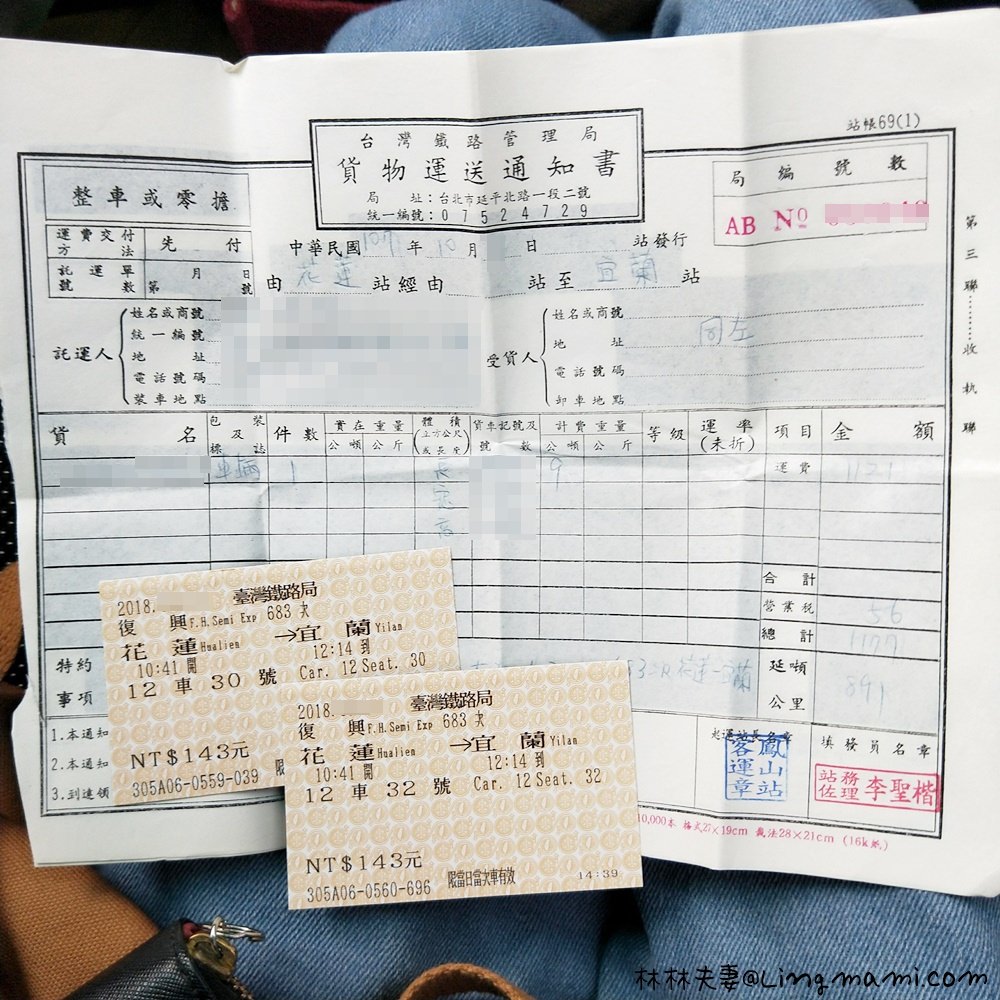 站帳69(1)
台灣鐵路管理局
貨物運送通知書
局址:台北市延平北路一段二號
統一編號:07524729
整車或零擔
運費交付方法 先付
託運單號數 第 月 日 號
局編號數
AB Nº
中華民國107年10月 日 站發行
由花蓮站經由 站至宜蘭站
託運人
姓名或商號
統一編號
地址
電話號碼
裝車地點
受貨人
姓名或商號
地址
電話號碼
卸車地點
同左
第三聯 收執聯
貨名 包裝及標誌 件數 實在重量 公噸 公斤 體積(立方公尺)或長度 貨車記號及號數 計費重量 公噸 公斤 等級 運率(未折) 項目 金額
車輛 1 長 寬 高 9 運費 1121
合計
營業稅 56
總計 1177
特約事項
延噸公里 891
1.本通知
2.本通知
3.到達領
起運站長名章
填務員名章
鳳山站
客運章
站務佐理 李聖楷
10,000本 格式27×19cm 裁法28×21cm (16k紙)
2018. 臺灣鐵路局
復興 F.H.Semi Exp 683次
花蓮 Hualien →宜蘭 Yilan
10:41開 12:14到
12車30號 Car. 12 Seat. 30
NT$143元
305A06-0559-039 限
2018. 臺灣鐵路局
復興 F.H.Semi Exp 683次
花蓮 Hualien →宜蘭 Yilan
10:41開 12:14到
12車32號 Car. 12 Seat. 32
NT$143元
305A06-0560-696 限當日當次車有效 14:39
林林夫妻@Lingmami.com